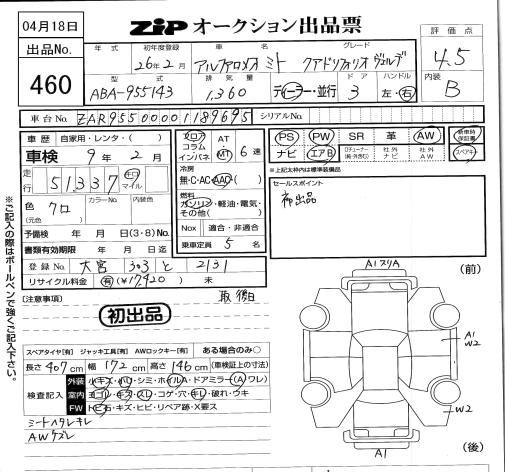 04月18日
出品No.
460
ZIP オークション出品票
評価点
4.5
内装
B
年式 初年度登録 車名 グレード
26年2月 アルファロメオ ミト クアドリフォリオ ヴェルデ
型式 排気量 ドア ハンドル
ABA-955143 1,360 ディーラー・並行 3 左・右
車台No. ZAR95500001189695 シリアルNo.
車歴 自家用・レンタ・( )
車検 9年2月
走行 51337 キロ マイル
色 (元色) クロ カラーNo. 内装色
予備検 年 月 日(3・8)No.
書類有効期限 年 月 日迄
登録No. 大宮 303 と 2131
リサイクル料金 有(¥17,420) 未
フロア コラム インパネ AT MT 6速
冷房
無・C・AC・AAC
燃料
ガソリン・軽油・電気・その他( )
Nox 適合・非適合
乗車定員 5名
PS PW SR 革 AW 新車時保証書
ナビ エアB 社外ナビ 社外AW スペアキー
※上記太枠内は標準装備品
セールスポイント
初出品
取 後日
【注意事項】
初出品
スペアタイヤ【有】 ジャッキ工具【有】 AWロックキー【有】 ある場合のみ○
長さ 407cm 幅 172cm 高さ 146cm (車検証上の寸法)
検査記入
外装 小キズ・凹・シミ・ホイルA・ドアミラー(A ワレ)
室内 ヨゴレ・キズ・スレ・コゲ・穴・キレ・破れ・ウキ
FW トビ石・キズ・ヒビ・リペア跡・X要ス
シートヘタレキレ
AWケズレ
A1スリA
(前)
A1
W2
W2
(後)
A1
※ご記入の際はボールペンで強くご記入下さい。